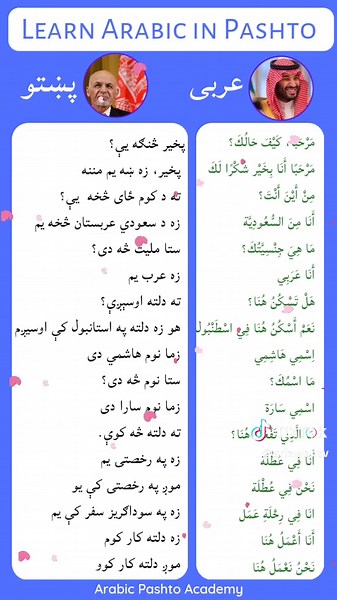 LEARN ARABIC IN PASHTO
پښتو
عربی
پخیر څنګه یې؟
مَرْحَبًا، كَيْفَ حَالُكَ؟
پخیر، زه ښه یم مننه
مَرْحَبًا أَنَا بِخَيْرٍ شُكْرًا لَكَ
ته د کوم ځای څخه یې؟
مِنْ أَيْنَ أَنْتَ؟
زه د سعودي عربستان څخه یم
أَنَا مِنَ السُّعُودِيَّة
ستا ملیت څه دی؟
مَا هِيَ جِنْسِيَّتُكَ؟
زه عرب یم
أَنَا عَرَبِي
ته دلته اوسېږې؟
هَلْ تَسْكُنُ هُنَا؟
هو زه دلته په استانبول کې اوسیږم
نَعَمْ أَسْكُنُ هُنَا فِي اسْطَنْبُول
زما نوم هاشمي دی
اِسْمِي هَاشِمِي
ستا نوم څه دی؟
مَا اسْمُكَ؟
زما نوم سارا دی
اسْمِي سَارَة
ته دلته څه کوې.
هُنَا؟
زه په رخصتی یم
أَنَا فِي عُطْلَة
موږ په رخصتی کې یو
نَحْنُ فِي عُطْلَة
زه په سوداګریز سفر کې یم
انَا فِي رِحْلَةِ عَمَل
زه دلته کار کوم
أَنَا أَعْمَلُ هُنَا
موږ دلته کار کوو
نَحْنُ نَعْمَلُ هُنَا
Arabic Pashto Academy